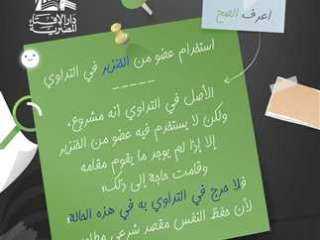 دار الإفتاء
المصرية
اعرف الصح
استخدام عضو من الخنزير في التداوي
الأصل في التداوي أنه مشروع،
ولكن لا يستخدم فيه عضو من الخنزير
إلا إذا لم يوجد ما يقوم مقامه
وقامت حاجة إلى ذلك؛
فلا حرج في التداوي به في هذه الحالة؛
لأن حفظ النفس مقصد شرعي